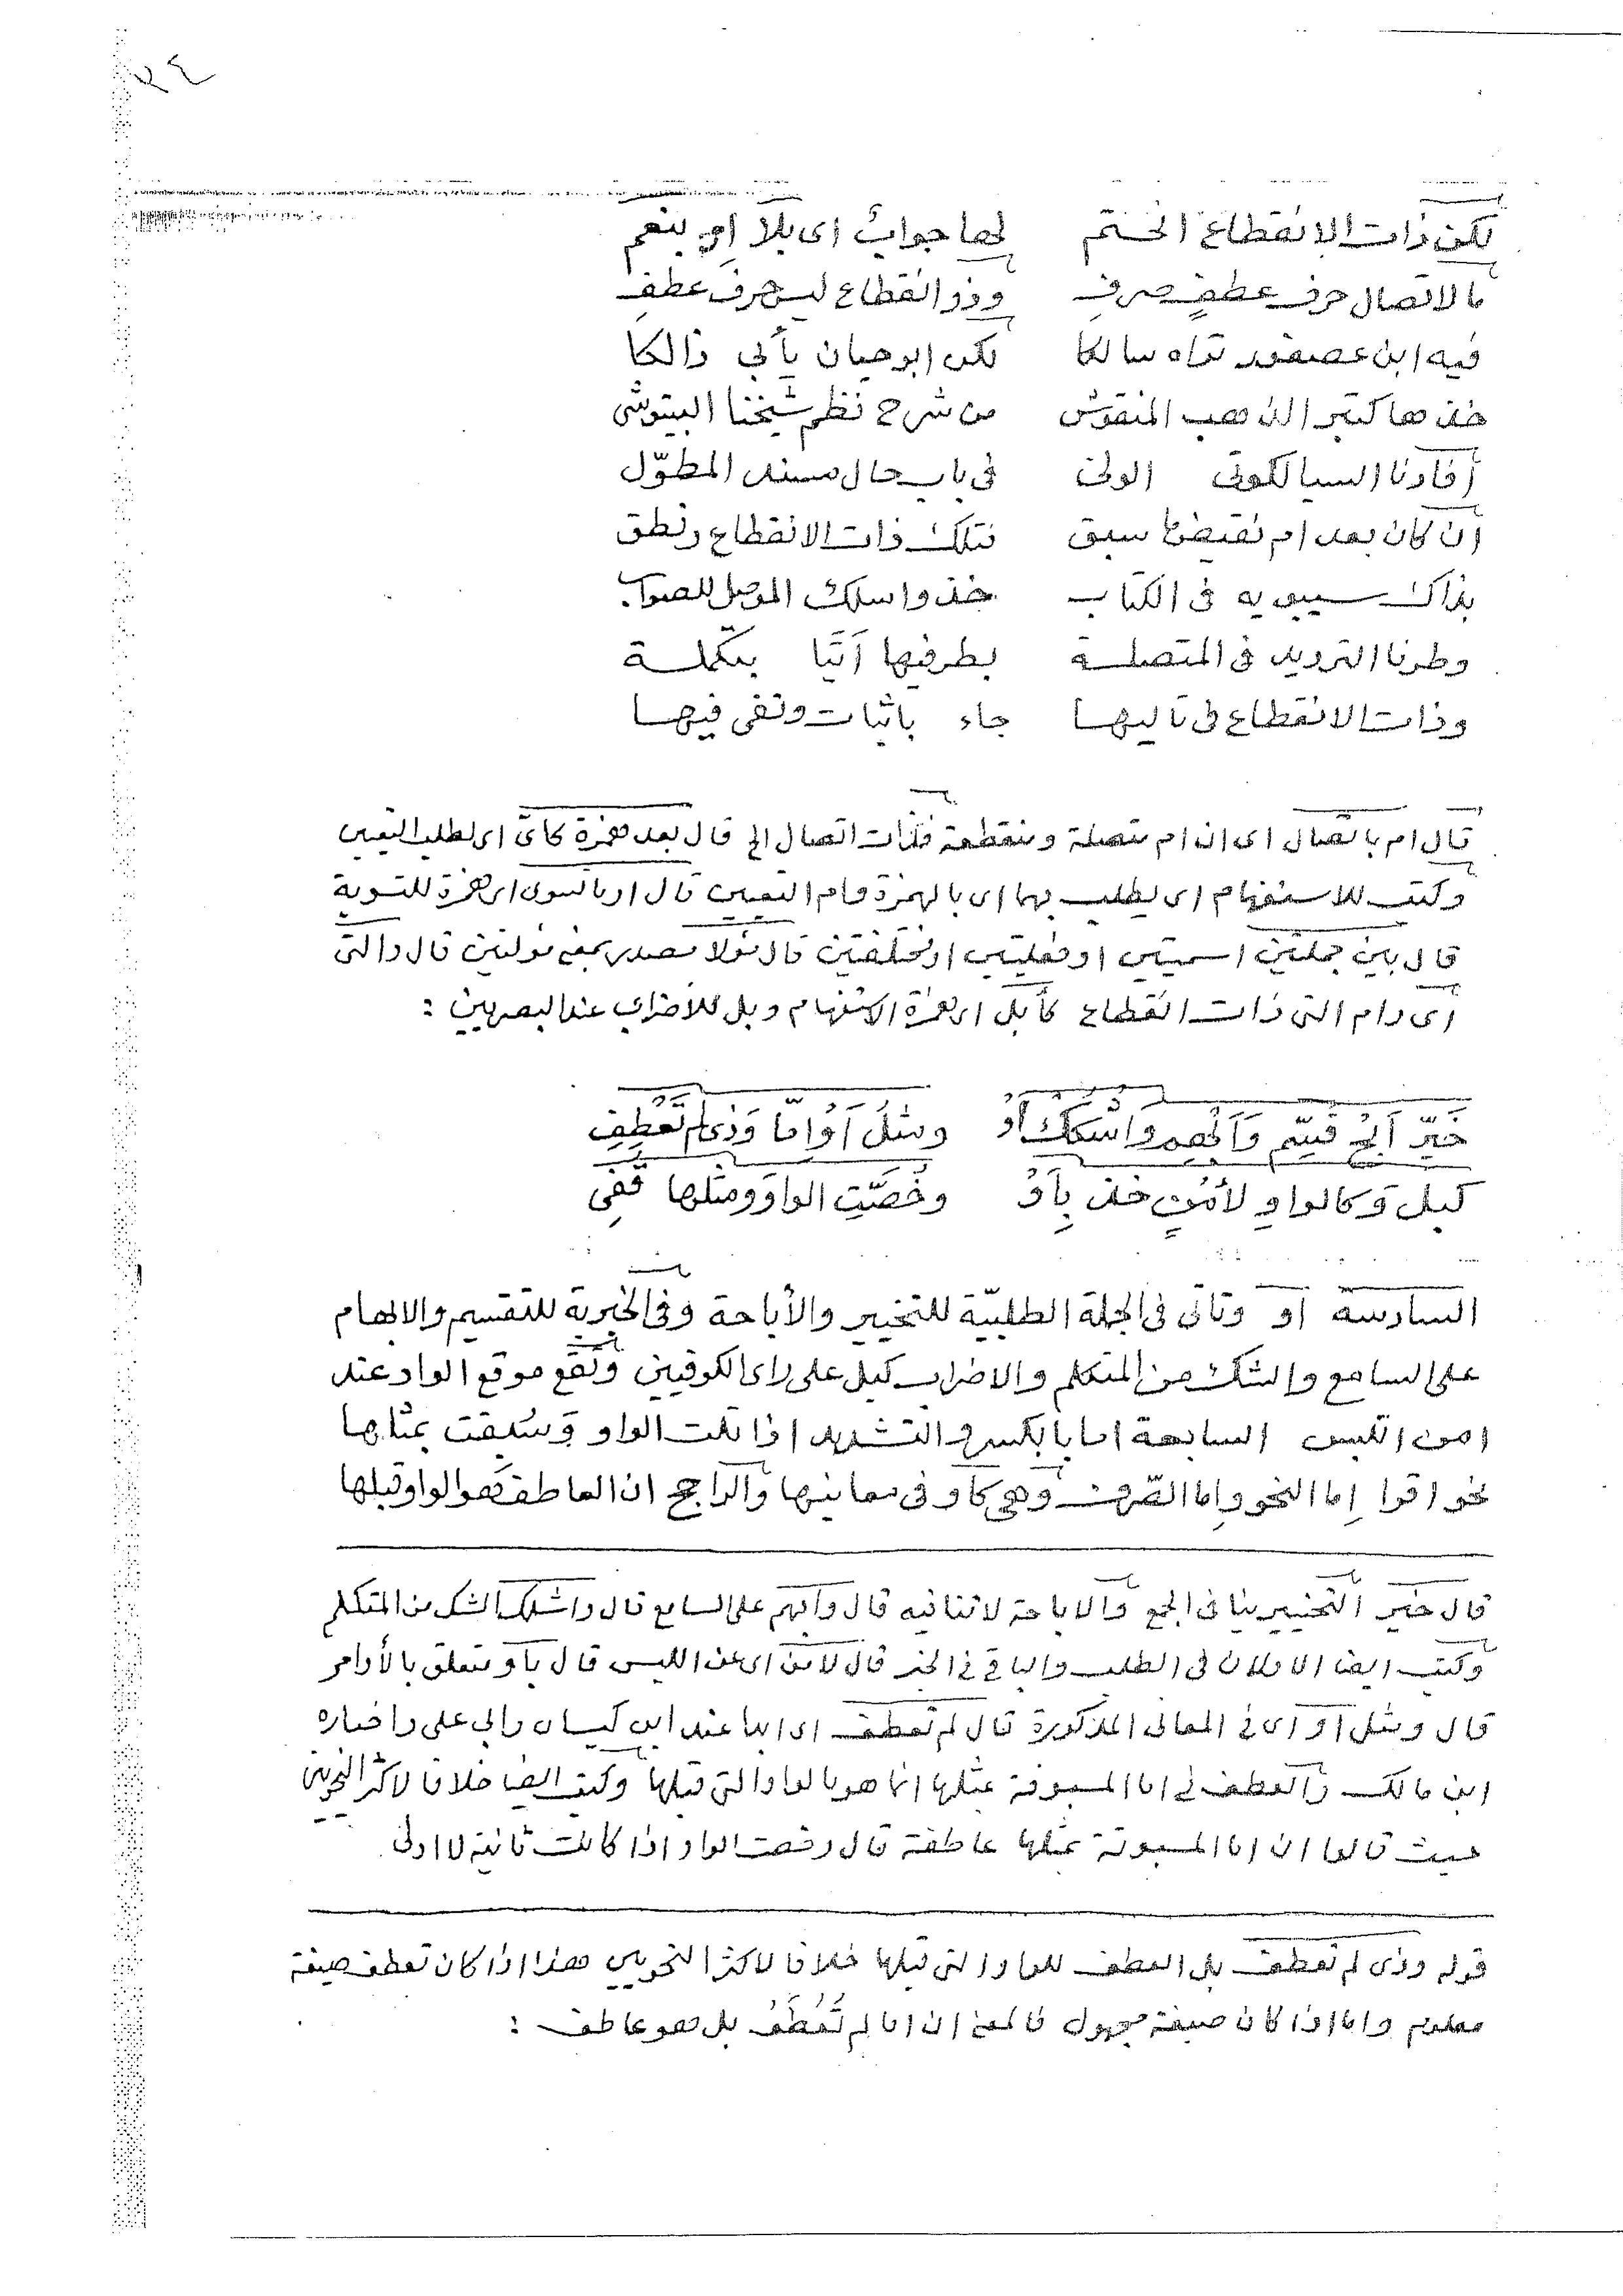 ٢٤
لكن ذات الانقطاع انختم لها جواب اى بلا او بنعم
ما لاتصال حرف عطفٍ صرفِ وذو انقطاع ليس حرف عطفِ
فيه ابن عصفور تراه سالكا لكن ابو حيان يأبى ذالكا
خذها كتبر الذهب المنقوش من شرح نظم شيخنا البيتوشى
أفادنا السيالكوتى الولى فى باب حال مسند المطوّل
ان كان بعد ام نقيض ما سبق فتلك ذات الانقطاع ونطق
بذاك سيبويه فى الكتاب خذ واسلك الموصل للصواب
وطرفا الترديد فى المتصلة بطرفيها أتيا بتكملة
وذات الانقطاع فى تاليها جاء باثبات ونفى فيها
قال ام باتصال اى ان ام متصلة ومنقطعة فذات اتصال الخ قال بعد همزة كاىّ اى لطلب التعيين
وكتب للاستفهام اى يطلب بها اى بالهمزة وام التعيين قال او بالسوى اى همزة للتسوية
قال بين جملتين اسميتين او فعليتين او مختلفتين قال مؤلا مصدر بمعنى مؤلتين قال والتى
اى وام التى ذات انقطاع كأبل اى همزة الاستفهام وبل للاضراب عند البصريين :
خَيِّر اَبِحْ قَسِّم وَاَبْهِم وَاشْكُكْ أوْ ومثلُ اَوْ اِمّا وَذى لم تَعْطِفِ
كبل وكالواو لأمْنٍ خذ بِاَوْ وخُصَّتِ الواوَ ومثلها قُفِى
السادسة او وتاتى فى الجملة الطلبيّة للتخيير والأباحة وفى الخبرية للتقسيم والابهام
على السامع والشك من المتكلم والاضراب كبل على راى الكوفيين وتقع موقع الواو عند
امن اللبس السابعة اما بالكسر والتشديد اذا تلت الواو وسُبقت بمثلها
نحو اقوا إما النحو وإما الصّرف وهى كأو فى معانيها والراجح ان العاطف هو الواو قبلها
قال خيّر التخيير ينافى الجمع والاباحة لا تنافيه قال وابهم على السامع قال واشكك الشك من المتكلم
وكتب ايضا الاولان فى الطلب والباقى فى الخبر قال لامن اى عن اللبس قال بأو متعلق بالأوامر
قال ومثل أو اى فى المعانى المذكورة قال لم تعطف اى ابدا عند ابن كيسان وابى على واختاره
ابن مالك والعطف فى اما المسبوقة بمثلها انما هو بالواو التى قبلها وكتب ايضا خلافا لاكثر النحويين
حيث قالوا ان اما المسبوقة بمثلها عاطفة قال وخصت الواو اذا كانت ثانية لا اولى
قوله وذى لم تعطف بل العطف للواو التى قبلها خلافا لاكثر النحويين هذا اذا كان تعطف صيغة
معلوم واما اذا كان صيغة مجهول فالمعنى ان اما لم تُعْطَفْ بل هو عاطف :